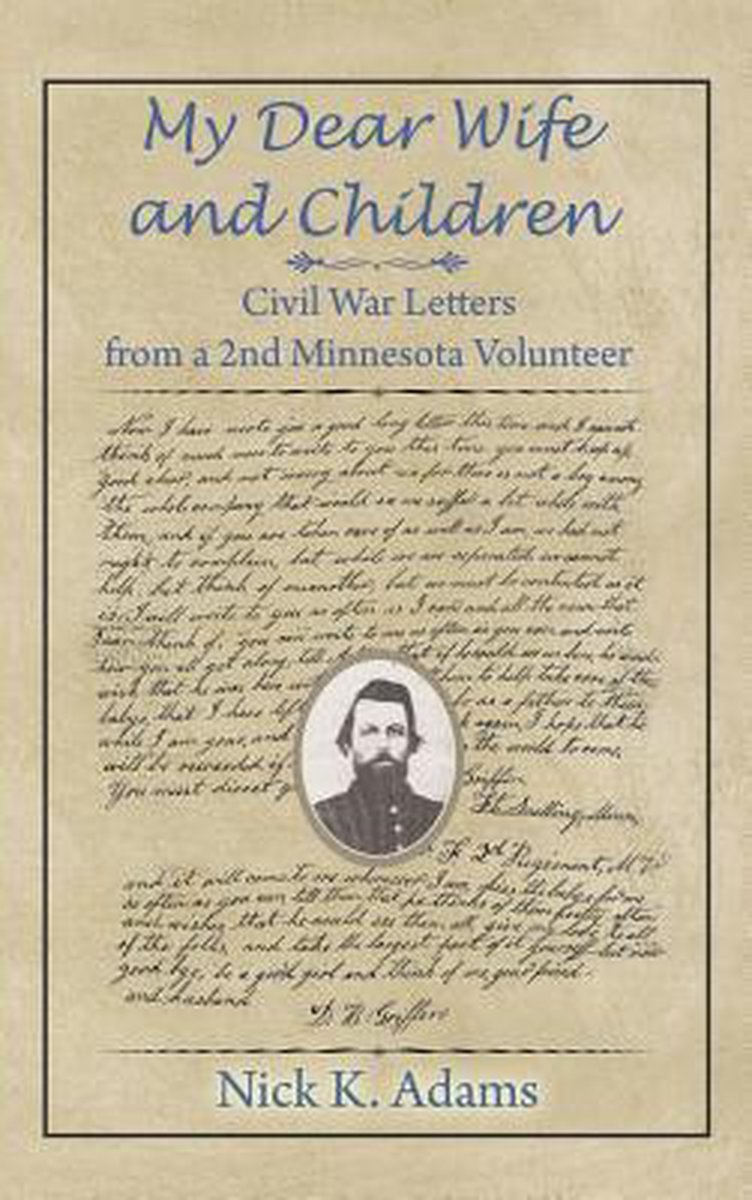 My Dear Wife
and Children
Civil War Letters
from a 2nd Minnesota Volunteer
Now I have wrote you a good long letter this time and I cannot
think of much more to write to you this time you must keep up
good cheer, and not worry about me for there is not a boy among
the whole company that would see me suffer a bit while with
them, and if you are taken care of as well as I am, we had not
right to complain, but while we are separated we cannot
help but think of one another, but we must be contented as it
is. I will write to you as often as I can and all the news that
I can think of, you can write to me as often as you can and write
how you all get along, tell
wish that he was here
to help take care of the
babys, that I have left
be as a father to them,
while I am gone, and
again, I hope that he
will be rewarded
the world to come,
You must direct
Griffin
Ft. Snelling, Minn,
F 2d Regiment, M
and it will come to me wherever I am, kiss the babys for me
as often as you can tell them that pa thinks of them pretty often
and wishes that he could see them all, give my love to all
of the folks, and take the largest part of it yourself but now
good bye, be a good girl and think of me your friend
and husband
D. B. Griffin
Nick K. Adams